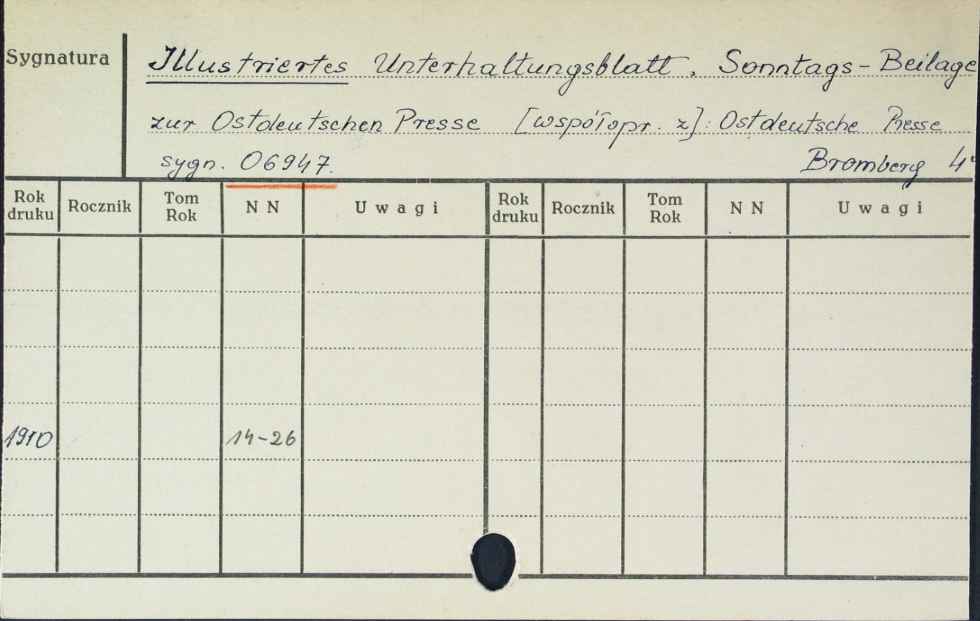 Sygnatura
Illustriertes Unterhaltungsblatt. Sonntags-Beilage
zur Ostdeutschen Presse [współopr. z]: Ostdeutsche Presse
sygn. 06947. Bromberg 4°
Rok druku Rocznik Tom Rok N N Uwagi Rok druku Rocznik Tom Rok N N Uwagi
1910 14-26